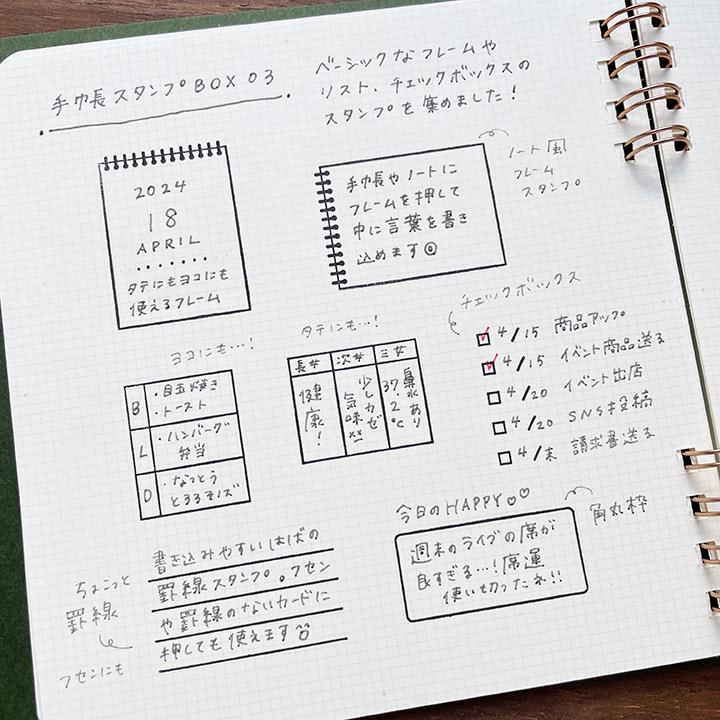 手巾長スタンプBOX 03
ベーシックなフレームや
リスト、チェックボックスの
スタンプを集めました!
2024
18
APRIL
タテにもヨコにも
使えるフレーム
手巾長やノートに
フレームを押して
中に言葉を書き
込めます
ノート風
フレーム
スタンプ
ヨコにも…!
B
・目玉焼き
・トースト
L
・ハンバーグ
弁当
D
・なっとう
とろろそば
タテにも…!
長女
次女
三女
健康!
少しカゼ
気味
鼻水あり
37.2℃
チェックボックス
4/15 商品アップ
4/15 イベント商品送る
4/20 イベント出店
4/20 SNS投稿
4/末 請求書送る
ちょこっと
罫線
フセンにも
書き込みやすいはばの
罫線スタンプ。フセン
や罫線のないカードに
押しても使えます
今日のHAPPY♡♡
週末のライブの席が
良すぎる…!席運
使い切ったネ!!
角丸枠